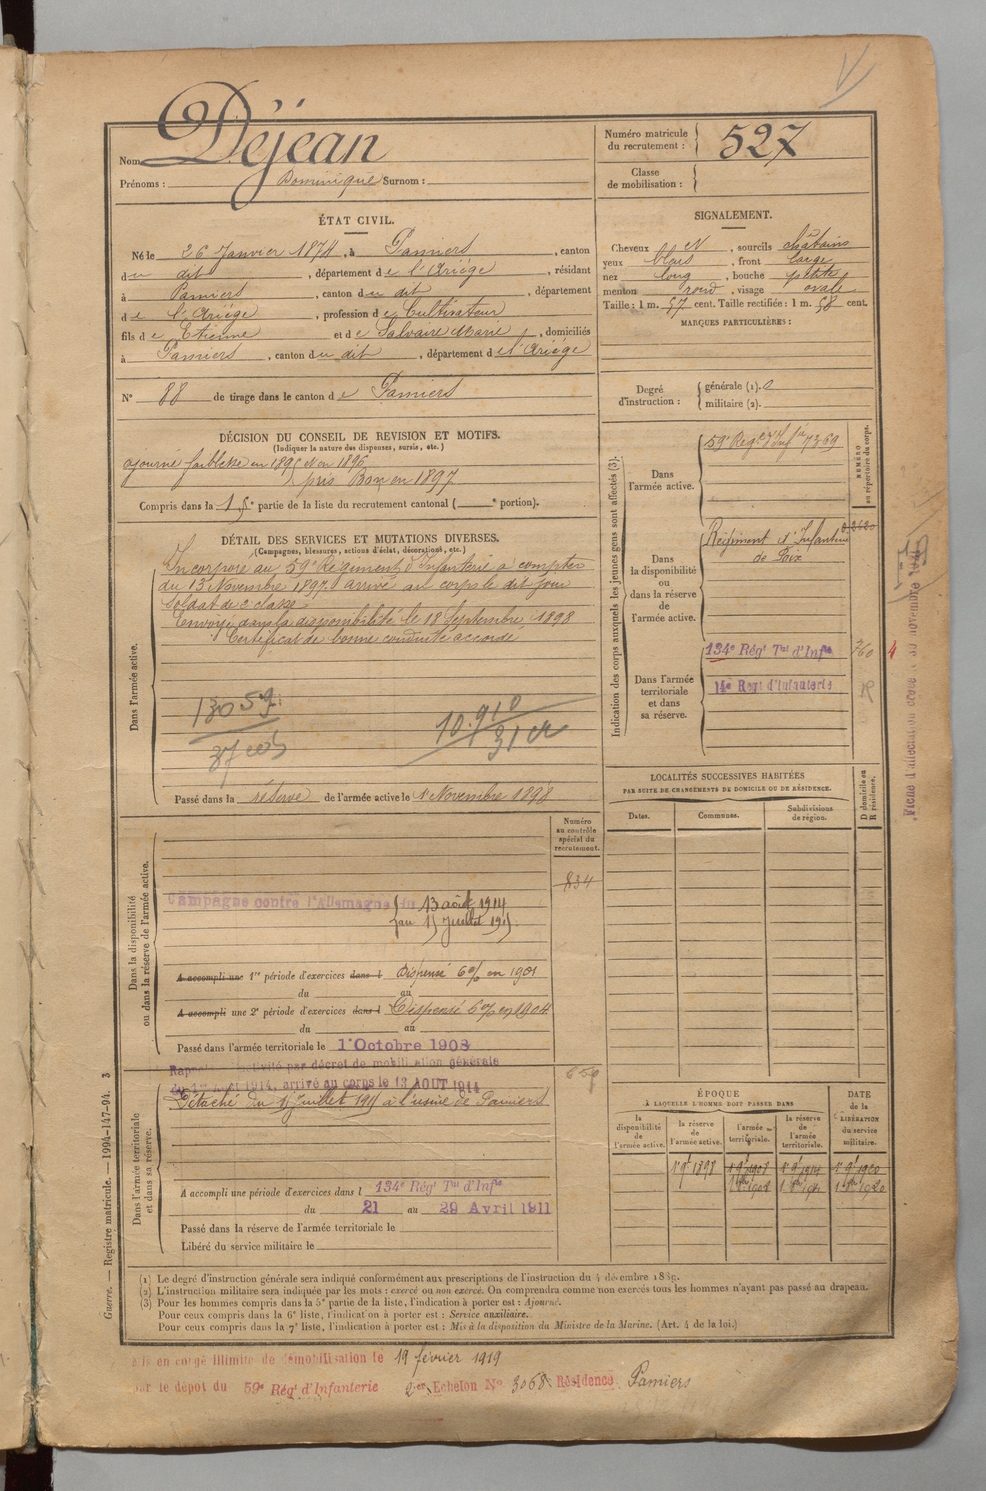 Nom Déjean
Prénoms : Dominique Surnom :
Numéro matricule du recrutement : 527
Classe de mobilisation :
ÉTAT CIVIL.
Né le 26 Janvier 1874, à Pamiers, canton
du dit, département de l'Ariége, résidant
à Pamiers, canton du dit, département
de l'Ariége, profession de Cultivateur
fils de Etienne et de Salvaire Marie, domiciliés
à Pamiers, canton du dit, département de l'Ariége
N° 88 de tirage dans le canton de Pamiers
SIGNALEMENT.
Cheveux et, sourcils châtains
yeux bleus, front large
nez long, bouche petite
menton rond, visage ovale
Taille : 1 m. 57 cent. Taille rectifiée : 1 m. 58 cent.
MARQUES PARTICULIÈRES :
Degré d'instruction : générale (1). 2
militaire (2).
DÉCISION DU CONSEIL DE REVISION ET MOTIFS.
(Indiquer la nature des dispenses, sursis, etc.)
ajourné faiblesse en 1895 et en 1896
pris Bon en 1897
Compris dans la 1, 5e partie de la liste du recrutement cantonal ( e portion).
DÉTAIL DES SERVICES ET MUTATIONS DIVERSES.
(Campagnes, blessures, actions d'éclat, décorations, etc.)
Dans l'armée active.
Incorporé au 59e Régiment d'Infanterie à compter
du 13 Novembre 1897. arrivé au corps le dit jour
Soldat de 2e classe
Envoyé dans la disponibilité le 18 Septembre 1898
Certificat de bonne conduite accordé
Passé dans la réserve de l'armée active le 1 Novembre 1898
Indication des corps auxquels les jeunes gens sont affectés (3).
NUMÉRO au répertoire du corps.
Dans l'armée active.
59e Regent d'Infie 7369
Dans la disponibilité ou dans la réserve de l'armée active.
Régiment d'Infanterie
de Foix
Dans l'armée territoriale et dans sa réserve.
134e Régt Tial d'Infie 760
14e Regt d'Infanterie R
LOCALITÉS SUCCESSIVES HABITÉES
PAR SUITE DE CHANGEMENTS DE DOMICILE OU DE RÉSIDENCE.
Dates. Communes. Subdivisions de région. D domicile ou R résidence.
Numéro au contrôle spécial du recrutement.
834
Dans la disponibilité ou dans la réserve de l'armée active.
Campagne contre l'Allemagne du 13 août 1914
au 15 Juillet 1915
A accompli une 1re période d'exercices dans l Dispensé 6% en 1901
du au
A accompli une 2e période d'exercices dans l Dispensé 6% en 1904
du au
Passé dans l'armée territoriale le 1er Octobre 1908
activité par décret de mobilisation générale
du 1er Août 1914, arrivé au corps le 13 AOUT 1914
Dans l'armée territoriale et dans sa réserve.
Détaché du 15 Juillet 1915 à l'usine de Pamiers
A accompli une période d'exercices dans l 134e Régt Tial d'Infie
du 21 au 29 Avril 1911
Passé dans la réserve de l'armée territoriale le
Libéré du service militaire le
ÉPOQUE
À LAQUELLE L'HOMME DOIT PASSER DANS
la disponibilité de l'armée active. la réserve de l'armée active. l'armée territoriale. la réserve de l'armée territoriale.
DATE de la LIBÉRATION du service militaire.
1er 9bre 1898 1er 9bre 1908 1er 9bre 1914 1er 9bre 1920
Guerre. — Registre matricule. — 1994-147-94. 3
(1) Le degré d'instruction générale sera indiqué conformément aux prescriptions de l'instruction du 4 décembre 1889.
(2) L'instruction militaire sera indiquée par les mots : exercé ou non exercé. On comprendra comme non exercés tous les hommes n'ayant pas passé au drapeau.
(3) Pour les hommes compris dans la 5e partie de la liste, l'indication à porter est : Ajourné.
Pour ceux compris dans la 6e liste, l'indication à porter est : Service auxiliaire.
Pour ceux compris dans la 7e liste, l'indication à porter est : Mis à la disposition du Ministre de la Marine. (Art. 4 de la loi.)
Mis en congé illimité de démobilisation le 19 février 1919
par le dépôt du 59e Régt d'Infanterie 2e Echelon N° 3068 Résidence Pamiers